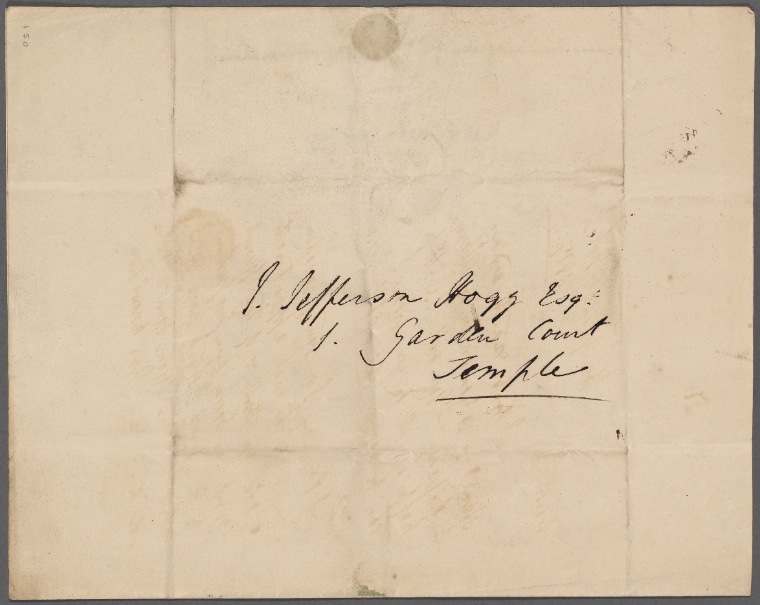 T. Jefferson Hogg Esqr.
1. Garden Court
Temple
150